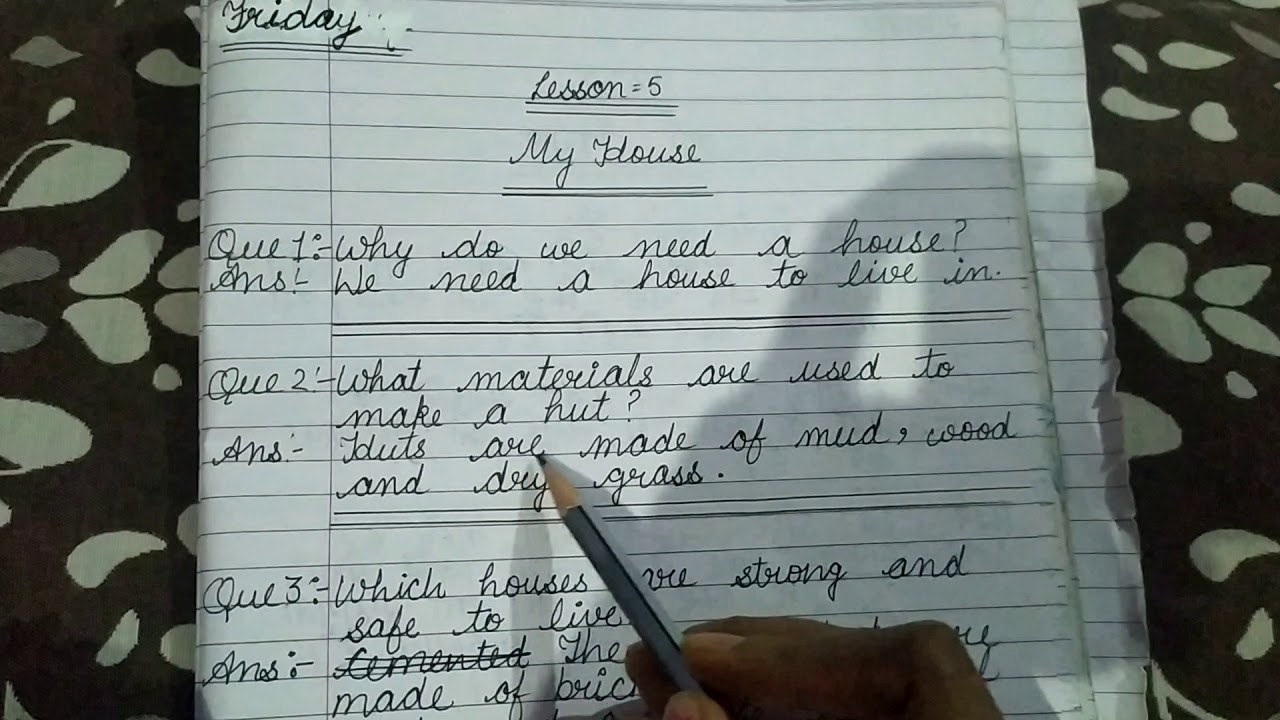 Friday
Lesson = 5
My House
Que 1:- Why do we need a house?
Ans:- We need a house to live in.
Que 2:- What materials are used to
make a hut?
Ans:- Huts are made of mud, wood
and dry grass.
Que 3:- Which houses are strong and
safe to live
Ans:- cemented The
made of bric